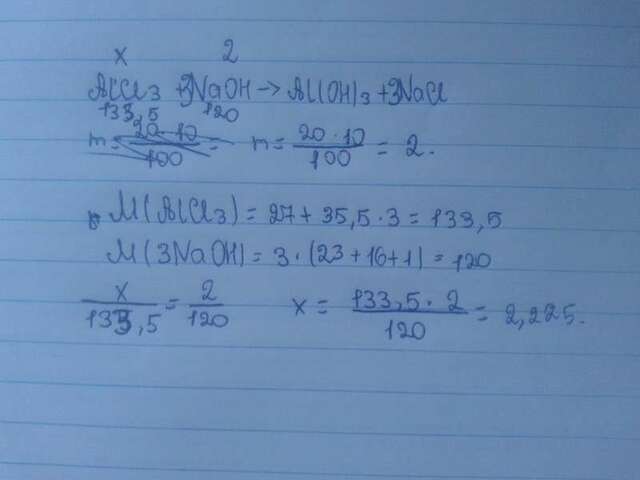 x 2
AlCl3 + 3NaOH → Al(OH)3 + 3NaCl
133,5 120
m = 20·10/100 = m = 20·10/100 = 2.
M(AlCl3) = 27 + 35,5·3 = 133,5
M(3NaOH) = 3·(23+16+1) = 120
x/133,5 = 2/120 x = 133,5·2/120 = 2,225.